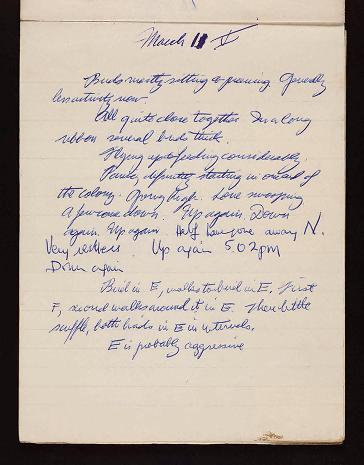 March 11 V
Birds mostly sitting & preening. Generally
less activity now.
All quite close together in a long
ribbon several birds thick.
Flying up & feeding considerably.
Panics, definitely starting in one end of
the colony. Going high. Some swooping
A few come down. Up again. Down
again. Up again. Half have gone away N.
Very restless. Up again 5.02 pm
Down again
Bird in E, walks to bird in E. First
F, second walks around it in E. Then little
scuffle, both birds in E in intervals.
E is probably aggressive